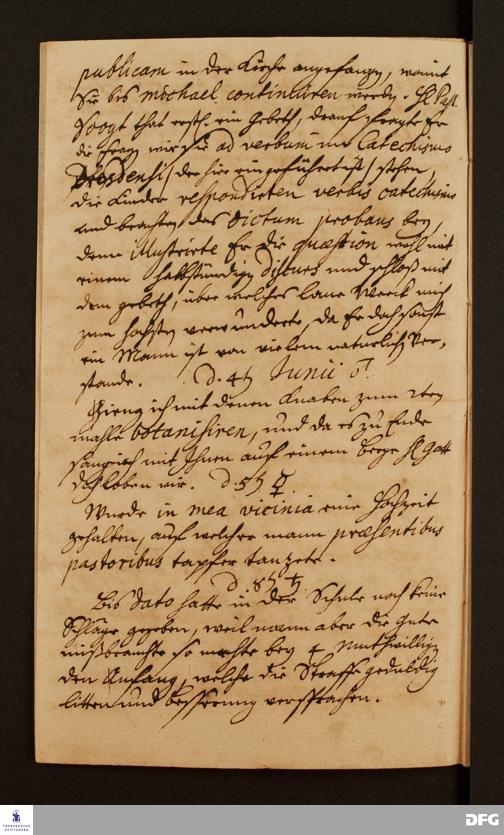 publicam in der Kirche angefangen, womit
Sie bis michael. continuiren werden. H. Past.
Voogt that erstl. ein Gebeth, drauf fragte Er
die Fragen wie sie ad verbum im Catechismo
Dresdensi / der hier eingeführet ist / stehen,
die Kinder respondirten verbis catechismi
und brachten das dictum probans bey,
denn illustrirte Er die quæstion wohl mit
einem halbstündigen discurs und schloß mit
dem gebeth, über welches laue Werck mich
zum hochsten verwunderte, da Er doch sonst
ein Mann ist von vielem naturlich Ver-
stande. d. 4t Junii ♂.
Gieng ich mit denen Knaben zum 2ten
mahle botanisiren, und da es zu Ende
sang ich mit Ihnen auf einem Berge H. Gott
dich loben wir. d 5t ☿
Wurde in mea vicinia eine Hochzeit
gehalten, auf welcher mann præsentibus
pastoribus tapfer tantzete.
d. 8t ♄
Bis dato hatte in der Schule noch keine
Schläge gegeben, weil mann aber die Güte
mißbrauchte so machte bey 4 muthwilligen
den Anfang, welche die Straffe geduldig
litten und besserung versprachen.
FRANCKESCHE STIFTUNGEN
DFG